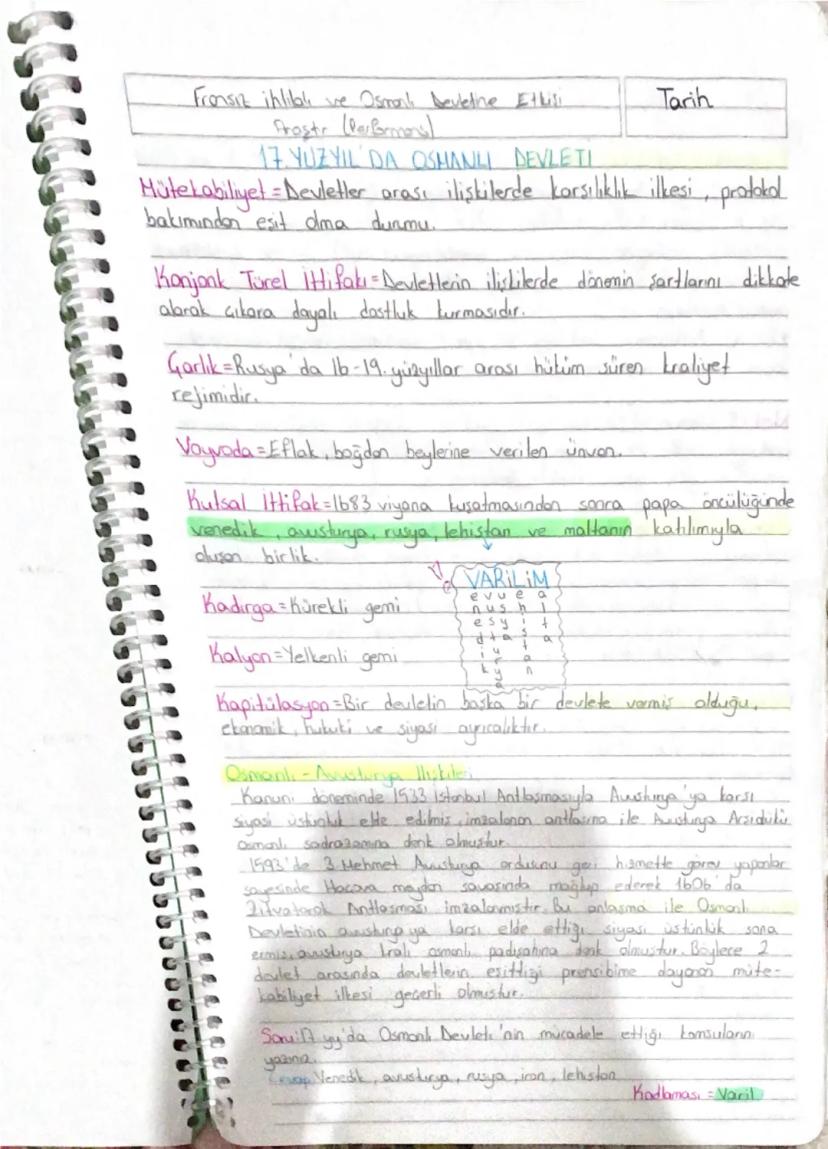 Fransız ihtilali ve Osmanlı Devletine Etkisi
Araştır (Performans)
Tarih
17. YÜZYIL'DA OSMANLI DEVLETİ
Mütekabiliyet = Devletler arası ilişkilerde karşılıklık ilkesi, protokol
bakımından eşit olma durmu.
Konjonk Türel İttifakı = Devletlerin ilişkilerde dönemin şartlarını dikkate
alarak çıkara dayalı dostluk kurmasıdır.
Çarlık = Rusya'da 16-19. yüzyıllar arası hüküm süren kraliyet
rejimidir.
Voyvoda = Eflak, boğdan beylerine verilen ünvan.
Kutsal İttifak = 1683 viyana kuşatmasından sonra papa öncülüğünde
venedik, avusturya, rusya, lehistan ve maltanın katılımıyla
oluşan birlik.
VARİLİM
e v u e a
n u s h l
e s y i t
d t a s a
i u t
k r a
y n
a
Kadırga = Kürekli gemi
Kalyon = Yelkenli gemi
Kapitülasyon = Bir devletin başka bir devlete vermiş olduğu,
ekonomik, hukuki ve siyasi ayrıcalıktır.
Osmanlı - Avusturya İlişkileri
Kanuni döneminde 1533 İstanbul Antlaşmasıyla Avusturya'ya karşı
siyasi üstünlük elde edilmiş, imzalanan antlaşma ile Avusturya Arşidükü
osmanlı sadrazamına denk olmuştur.
1593'de 3. Mehmet Avusturya ordusunu geri hizmette görev yapanlar
sayesinde Haçova meydan savaşında mağlup ederek 1606'da
Zitvatorok Antlaşması imzalanmıştır. Bu anlaşma ile Osmanlı
Devletinin avusturya ya karşı elde ettiği siyasi üstünlük sona
ermiş, avusturya kralı osmanlı padişahına denk olmuştur. Böylece 2
devlet arasında devletlerin eşitliği prensibime dayanan müte-
kabiliyet ilkesi geçerli olmuştur.
Soru: 17 yy'da Osmanlı Devleti'nin mücadele ettiği komşularını
yazınız.
Cevap Venedik, avusturya, rusya, iran, lehistan
Kodlaması = Varil